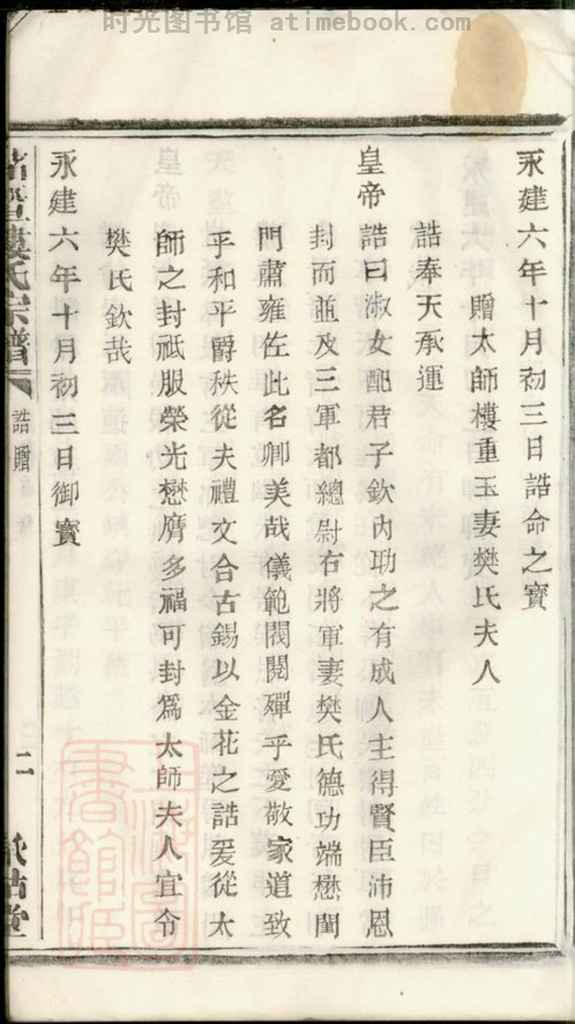 时光图书馆 atimebook.com
永建六年十月初三日誥命之寶
贈太師樓重玉妻樊氏夫人
誥奉天承運
皇帝誥曰淑女配君子欽內助之有成人主得賢臣沛恩
封而並及三軍都總尉右將軍妻樊氏德功端懋閨
門肅雍佐此名卿美哉儀範閥閱殫乎愛敬家道致
平和平爵秩從夫禮文合古錫以金花之誥爰從太
師之封祗服榮光懋膺多福可封爲太師夫人宜令
樊氏欽哉
永建六年十月初三日御寳
諸曁樓氏宗譜
誥贈
二
上海圖書館藏